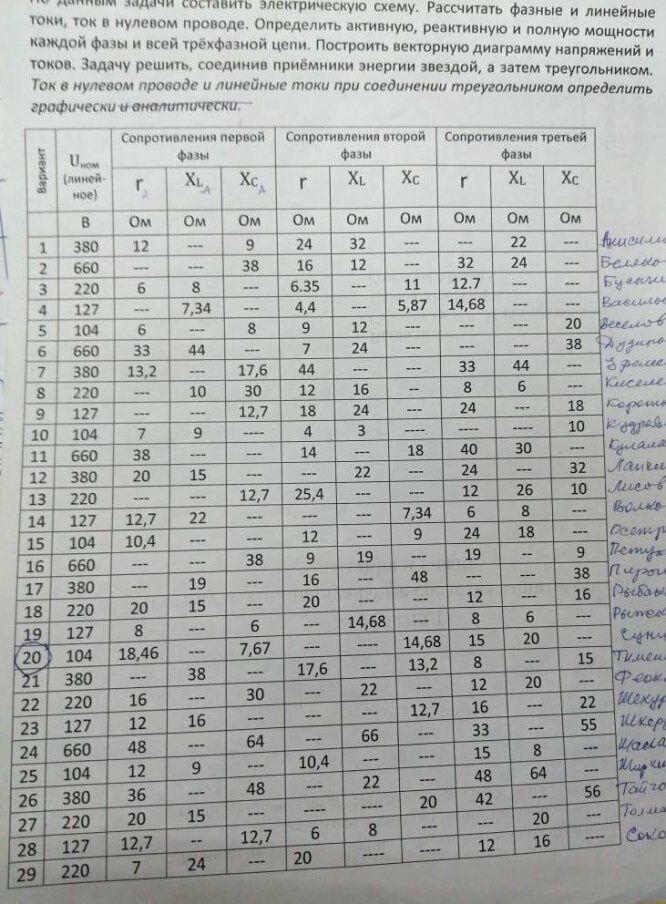 данным задачи составить электрическую схему. Рассчитать фазные и линейные
токи, ток в нулевом проводе. Определить активную, реактивную и полную мощности
каждой фазы и всей трёхфазной цепи. Построить векторную диаграмму напряжений и
токов. Задачу решить, соединив приёмники энергии звездой, а затем треугольником.
Ток в нулевом проводе и линейные токи при соединении треугольником определить
графически и аналитически.
Вариант Uном (линейное) Сопротивления первой фазы Сопротивления второй фазы Сопротивления третьей фазы
r A XL A XC A r XL XC r XL XC
В Ом Ом Ом Ом Ом Ом Ом Ом Ом
1 380 12 --- 9 24 32 --- --- 22 ---
2 660 --- --- 38 16 12 --- 32 24 ---
3 220 6 8 --- 6.35 --- 11 12.7 --- ---
4 127 --- 7,34 --- 4,4 --- 5,87 14,68 --- ---
5 104 6 --- 8 9 12 --- --- --- 20
6 660 33 44 --- 7 24 --- --- --- 38
7 380 13,2 --- 17,6 44 --- --- 33 44 ---
8 220 --- 10 30 12 16 -- 8 6 ---
9 127 --- --- 12,7 18 24 --- 24 --- 18
10 104 7 9 ---- 4 3 ---- --- --- 10
11 660 38 --- --- 14 --- 18 40 30 ---
12 380 20 15 --- --- 22 --- 24 --- 32
13 220 --- --- 12,7 25,4 --- --- 12 26 10
14 127 12,7 22 --- --- --- 7,34 6 8 ---
15 104 10,4 --- --- 12 --- 9 24 18 ---
16 660 --- --- 38 9 19 --- 19 -- 9
17 380 --- 19 --- 16 --- 48 --- --- 38
18 220 20 15 --- 20 --- --- 12 --- 16
19 127 8 --- 6 --- 14,68 --- 8 6 ---
20 104 18,46 --- 7,67 ---- ---- 14,68 15 20 ---
21 380 --- 38 --- 17,6 --- 13,2 8 --- 15
22 220 16 --- 30 --- 22 --- 12 20 ---
23 127 12 16 --- --- --- 12,7 16 --- 22
24 660 48 --- 64 --- 66 --- 33 --- 55
25 104 12 9 --- 10,4 --- --- 15 8 ---
26 380 36 --- 48 --- 22 --- 48 64 ---
27 220 20 15 --- ---- ---- 20 42 --- 56
28 127 12,7 -- 12,7 6 8 --- --- 20 ---
29 220 7 24 --- 20 ---- ---- 12 16 ----